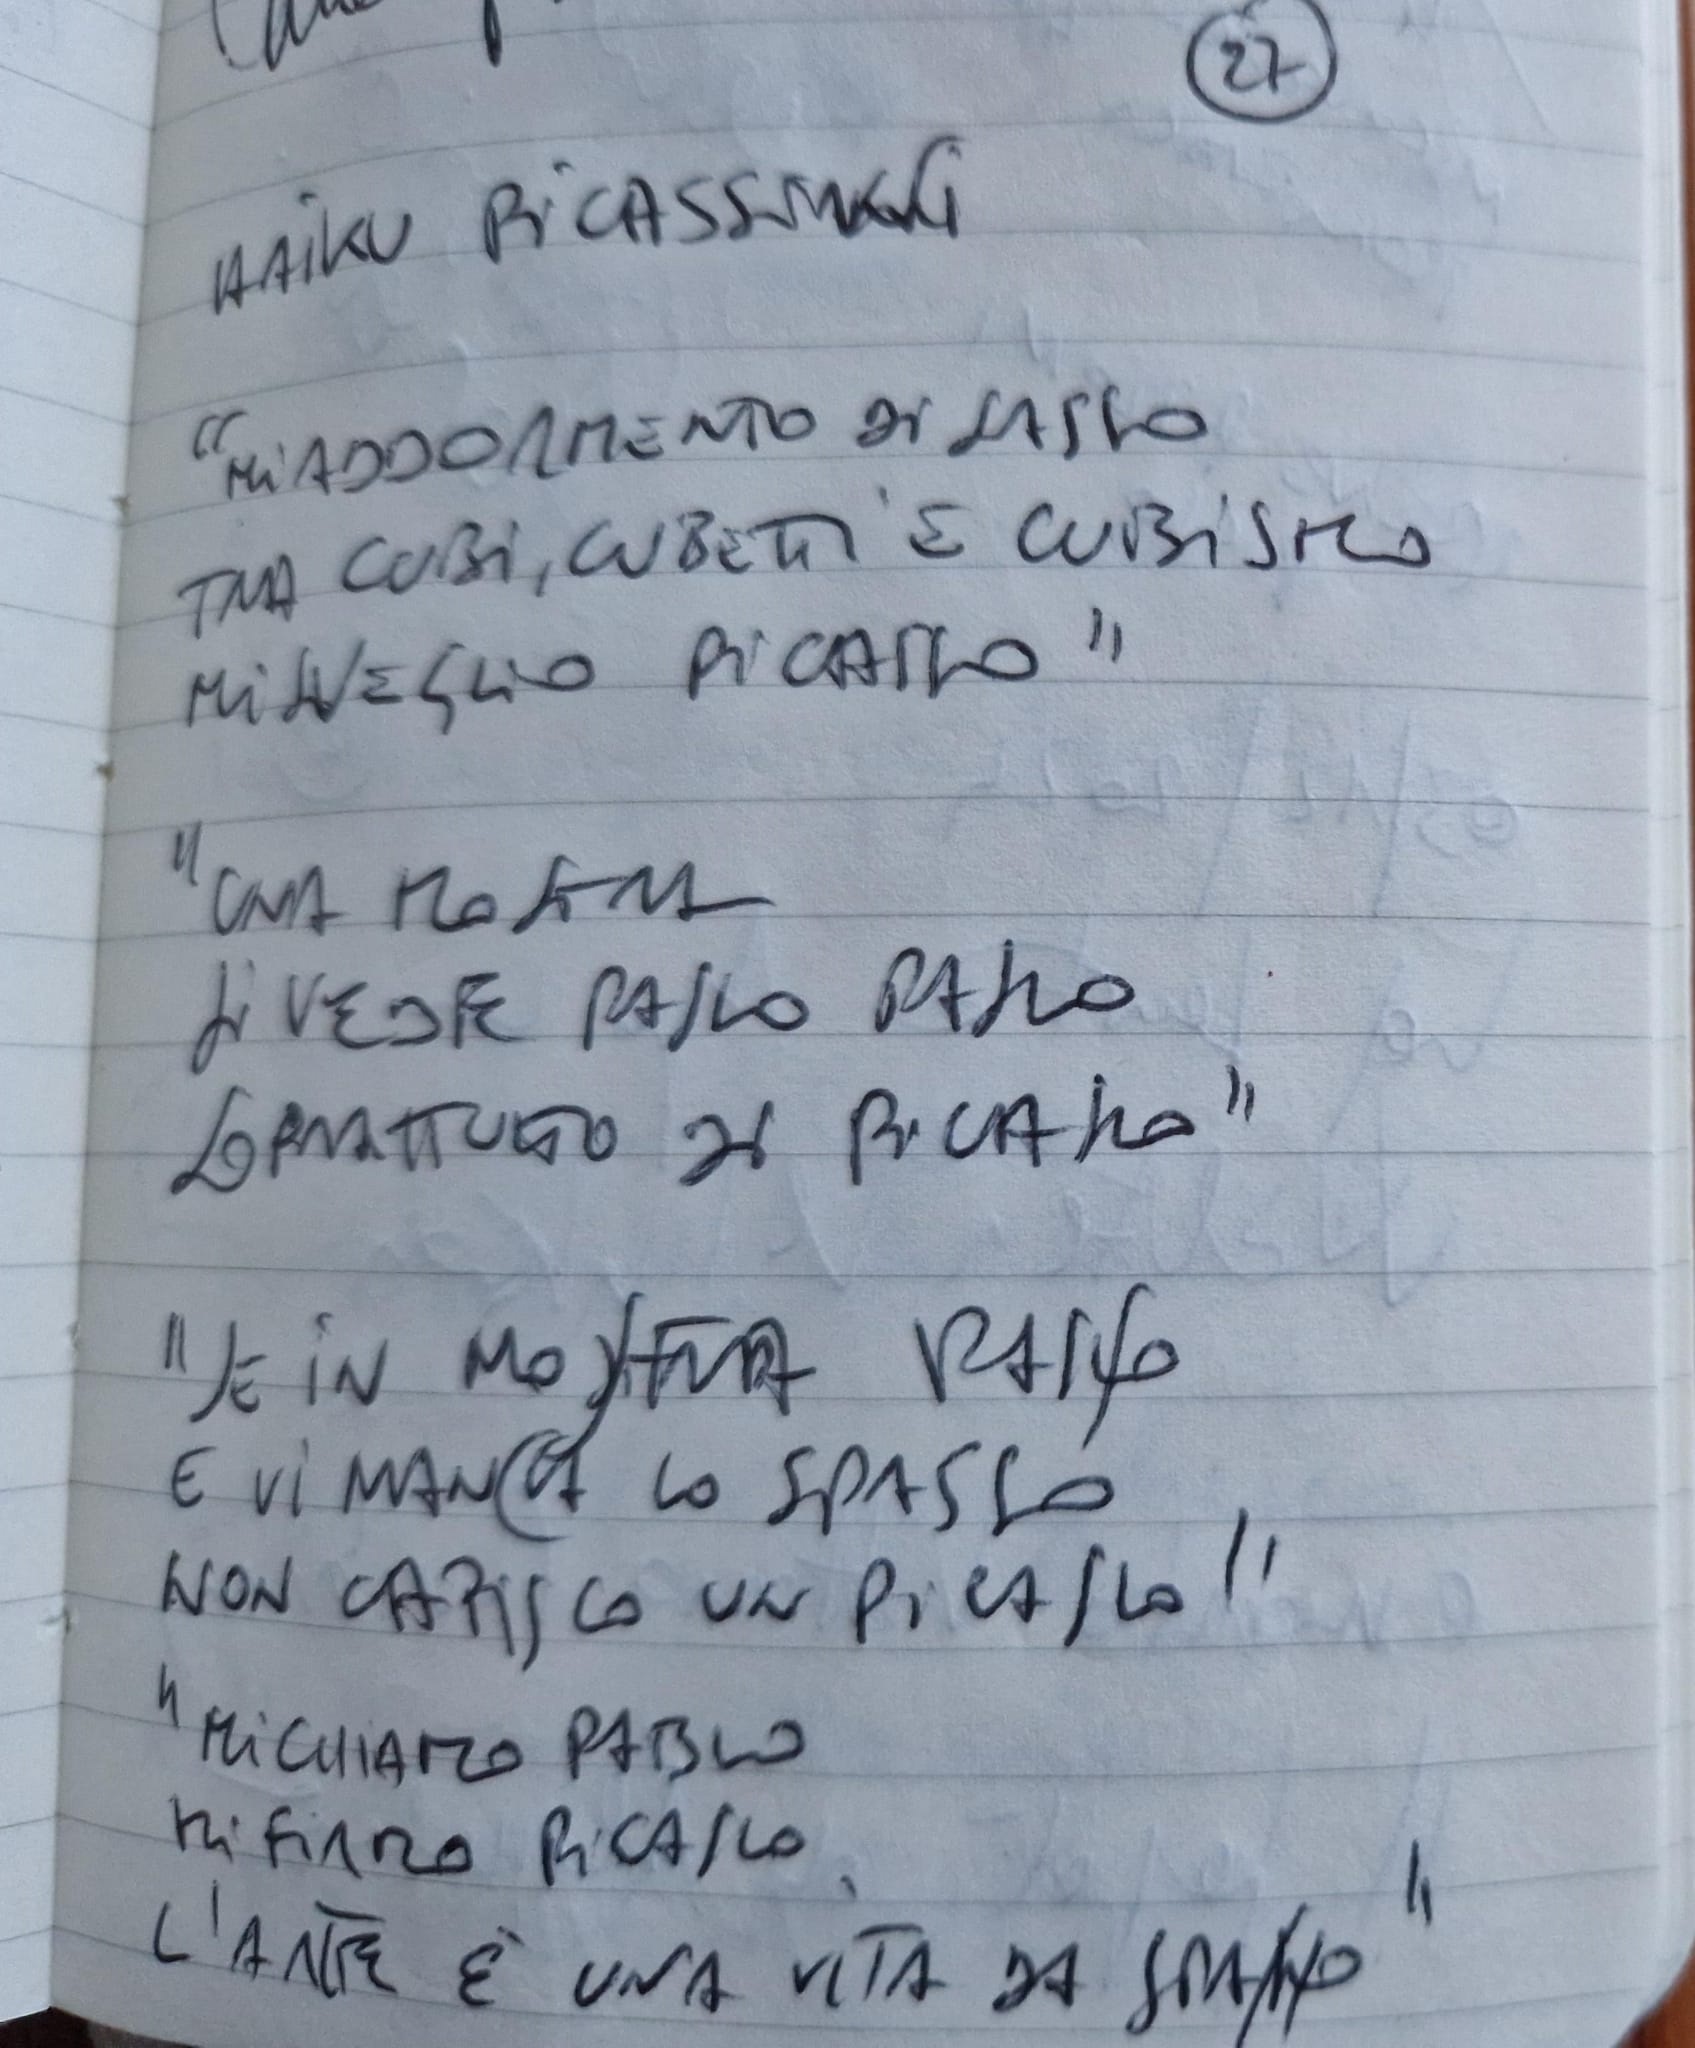 27
HAIKU PICASSIANI
"MI ADDORMENTO DI SASSO
TRA CUBI, CUBETTI E CUBISMO
MI SVEGLIO PICASSO"
"UNA MOSTRA
SI VEDE PASSO PASSO
SOPRATTUTTO DI PICASSO"
"SE IN MOSTRA PASSO
E VI MANCA LO SPASSO
NON CAPISCO UN PICASSO"
"MI CHIAMO PABLO
MI FIRMO PICASSO
L'ARTE È UNA VITA DA SPASSO"